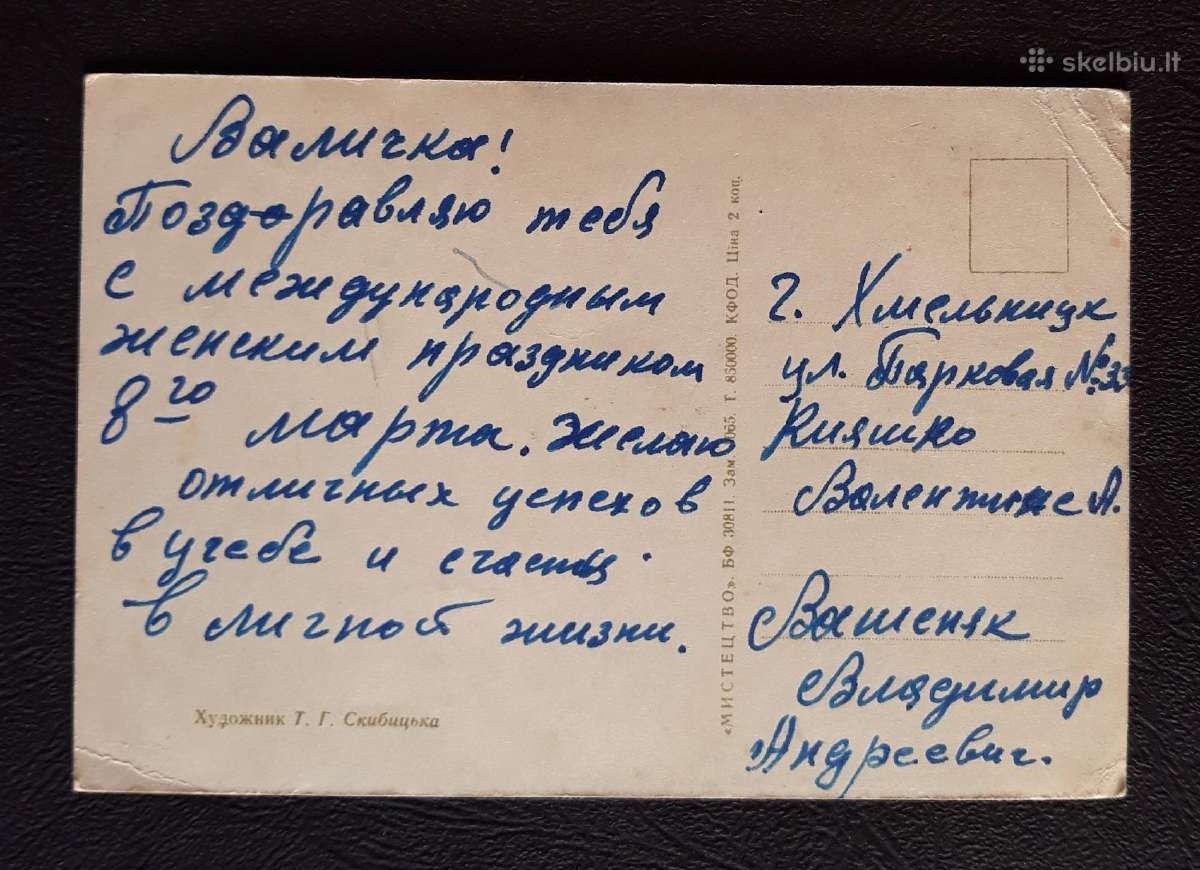 skelbiu.lt
Валичка!
Поздоравляю тебя
с международным
женским праздником
8го марта. Желаю
отличных успехов
в учебе и счастья
в личной жизни.
Художник Т. Г. Скибицька
«МИСТЕЦТВО». БФ 30811. Зам. Т. 850000. КФОД. Ціна 2 коп.
г. Хмельницк
ул. Парковая №33
Кияшко
Валентине А.
Вашеняк
Владимир
Андреевич.